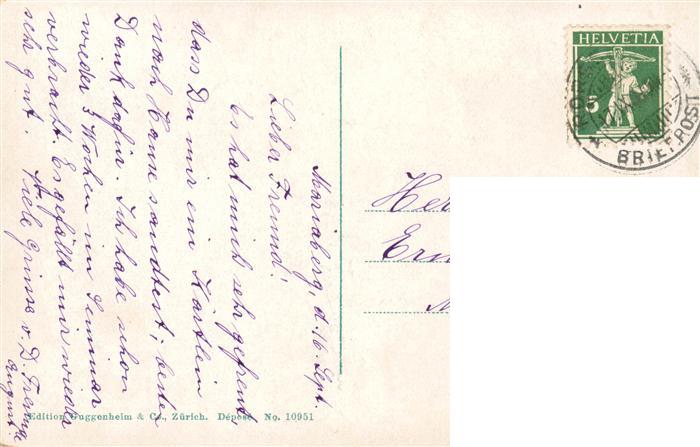 Mariaberg, d. 16. Sept.
Lieber Freund!
Es hat mich sehr gefreut,
dass Du mir ein Kärtlein
nach Hause sandtest, besten
Dank dafür. Ich habe schon
wieder 3 Wochen im Seminar
verbracht. Es gefällt mir wieder
sehr gut. Viele Grüsse v. D. Freunde
August.
HELVETIA
5
BRIEFPOST
Her
Ern
Edition Guggenheim & Co., Zürich. Déposé No. 10951